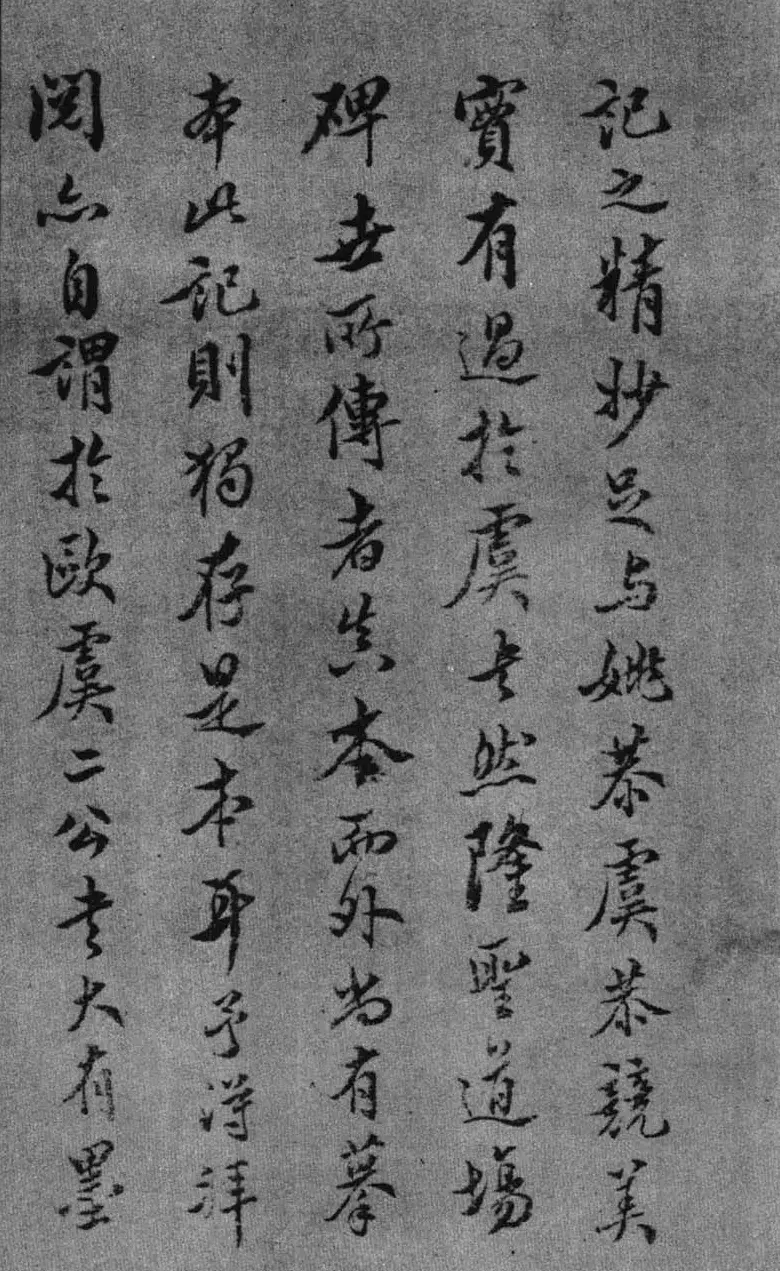 記之精妙足与姚恭虞恭競美
實有過於虞者然隆聖道場
碑世所傳者真本而外尚有摹
本此記則獨存是本耳予得拜
閱亦自謂於歐虞二公書大有墨